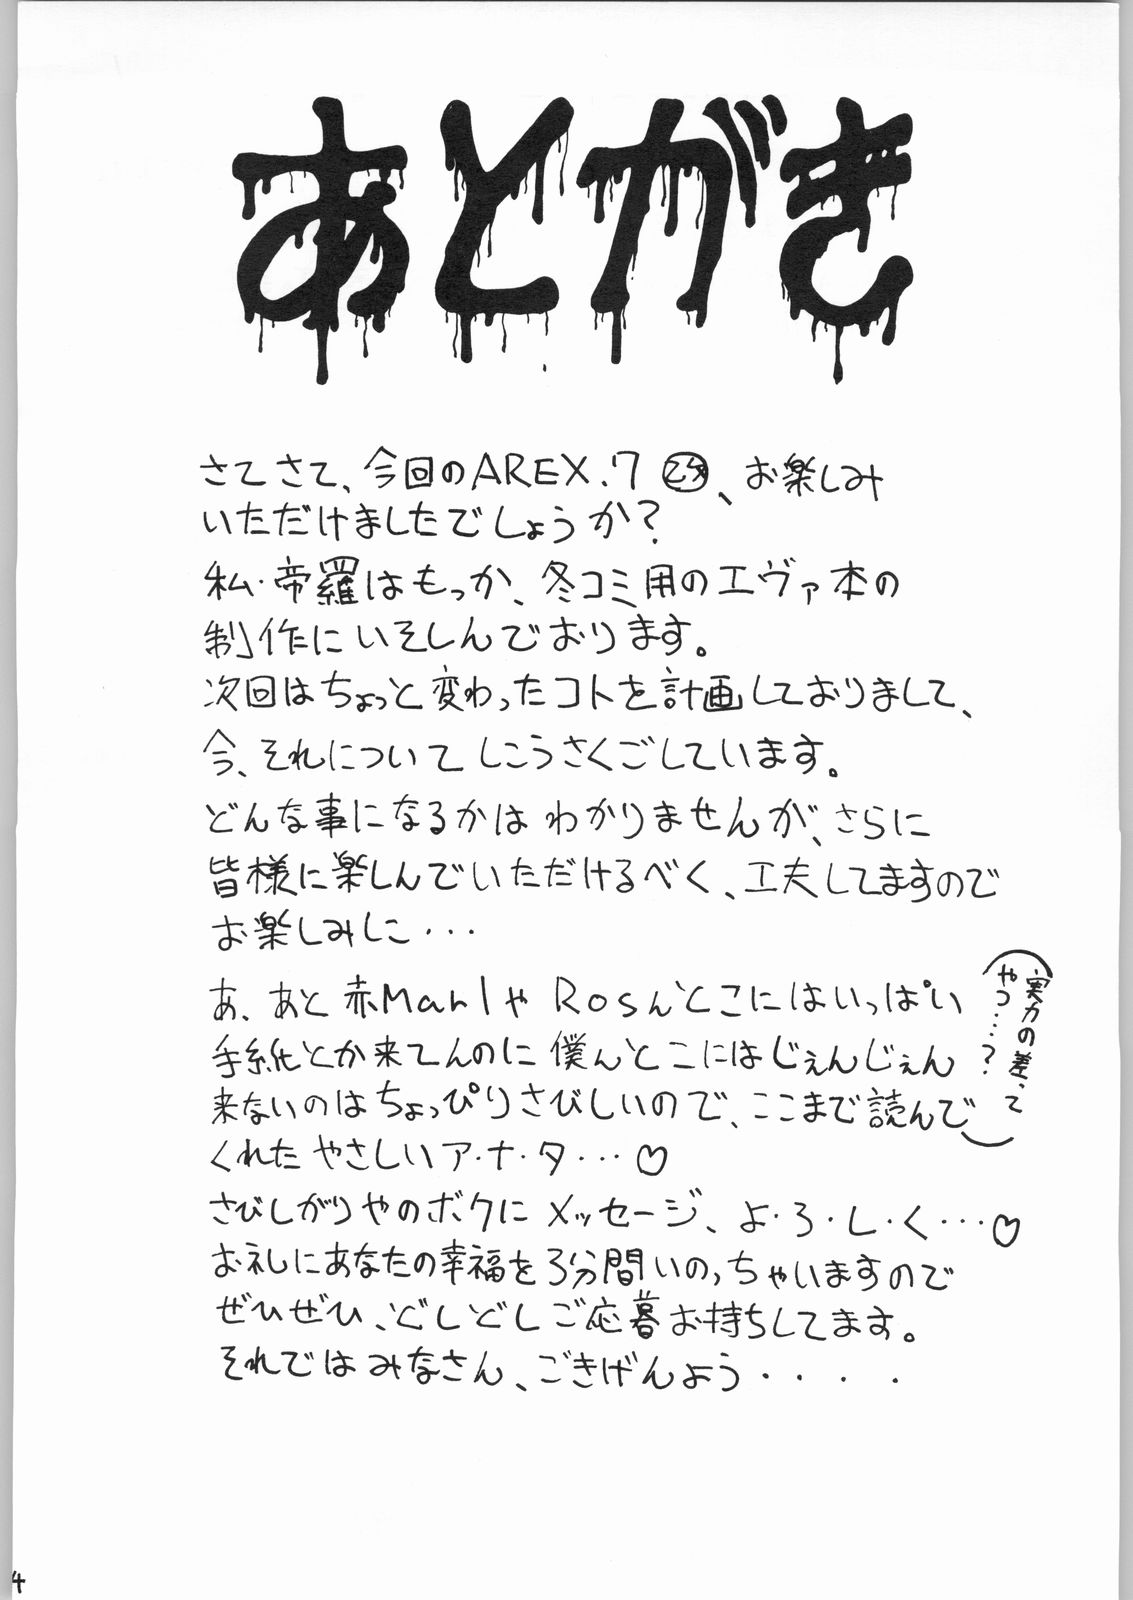 あとがき
さてさて、今回のAREX.7、お楽しみ
いただけましたでしょうか?
私・帝羅はもっか、冬コミ用のエヴァ本の
制作にいそしんでおります。
次回はちょっと変わったコトを計画しておりまして、
今、それについてしこうさくごしています。
どんな事になるかはわかりませんが、さらに
皆様に楽しんでいただけるべく、工夫してますので
お楽しみしに・・・
あ、あと赤Marlや Rosんとこにはいっぱい
手紙とか来てんのに僕んとこにはじぇんじぇん
(実力の差、って
やつ・・・?)
来ないのはちょっぴりさびしいので、ここまで読んで
くれたやさしいア・ナ・タ・・・♡
さびしがりやのボクにメッセージ、よ・ろ・し・く・・・♡
お礼にあなたの幸福を3分間いのっちゃいますので
ぜひぜひ、どしどしご応募お持ちしてます。
それではみなさん、ごきげんよう・・・・
4